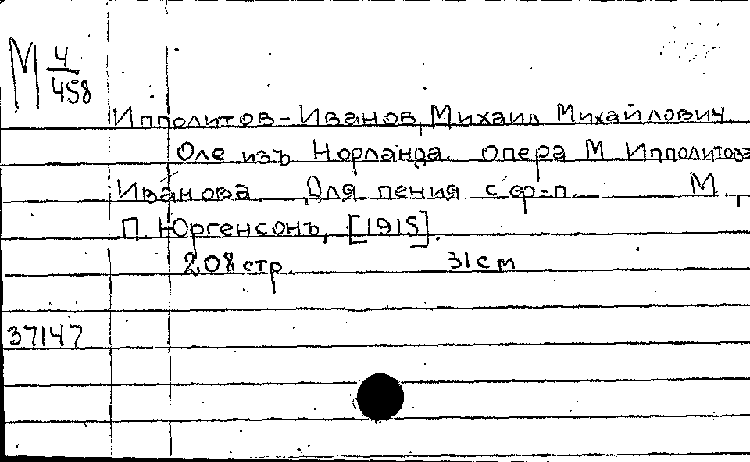 М 4/458
Ипполитов-Иванов, Михаил Михайлович.
Оле изъ Норланда. опера М Ипполитова
Иванова. Для пения с ф-п. М.,
П. Юргенсонъ, [1915].
208 стр. 31 см
37147